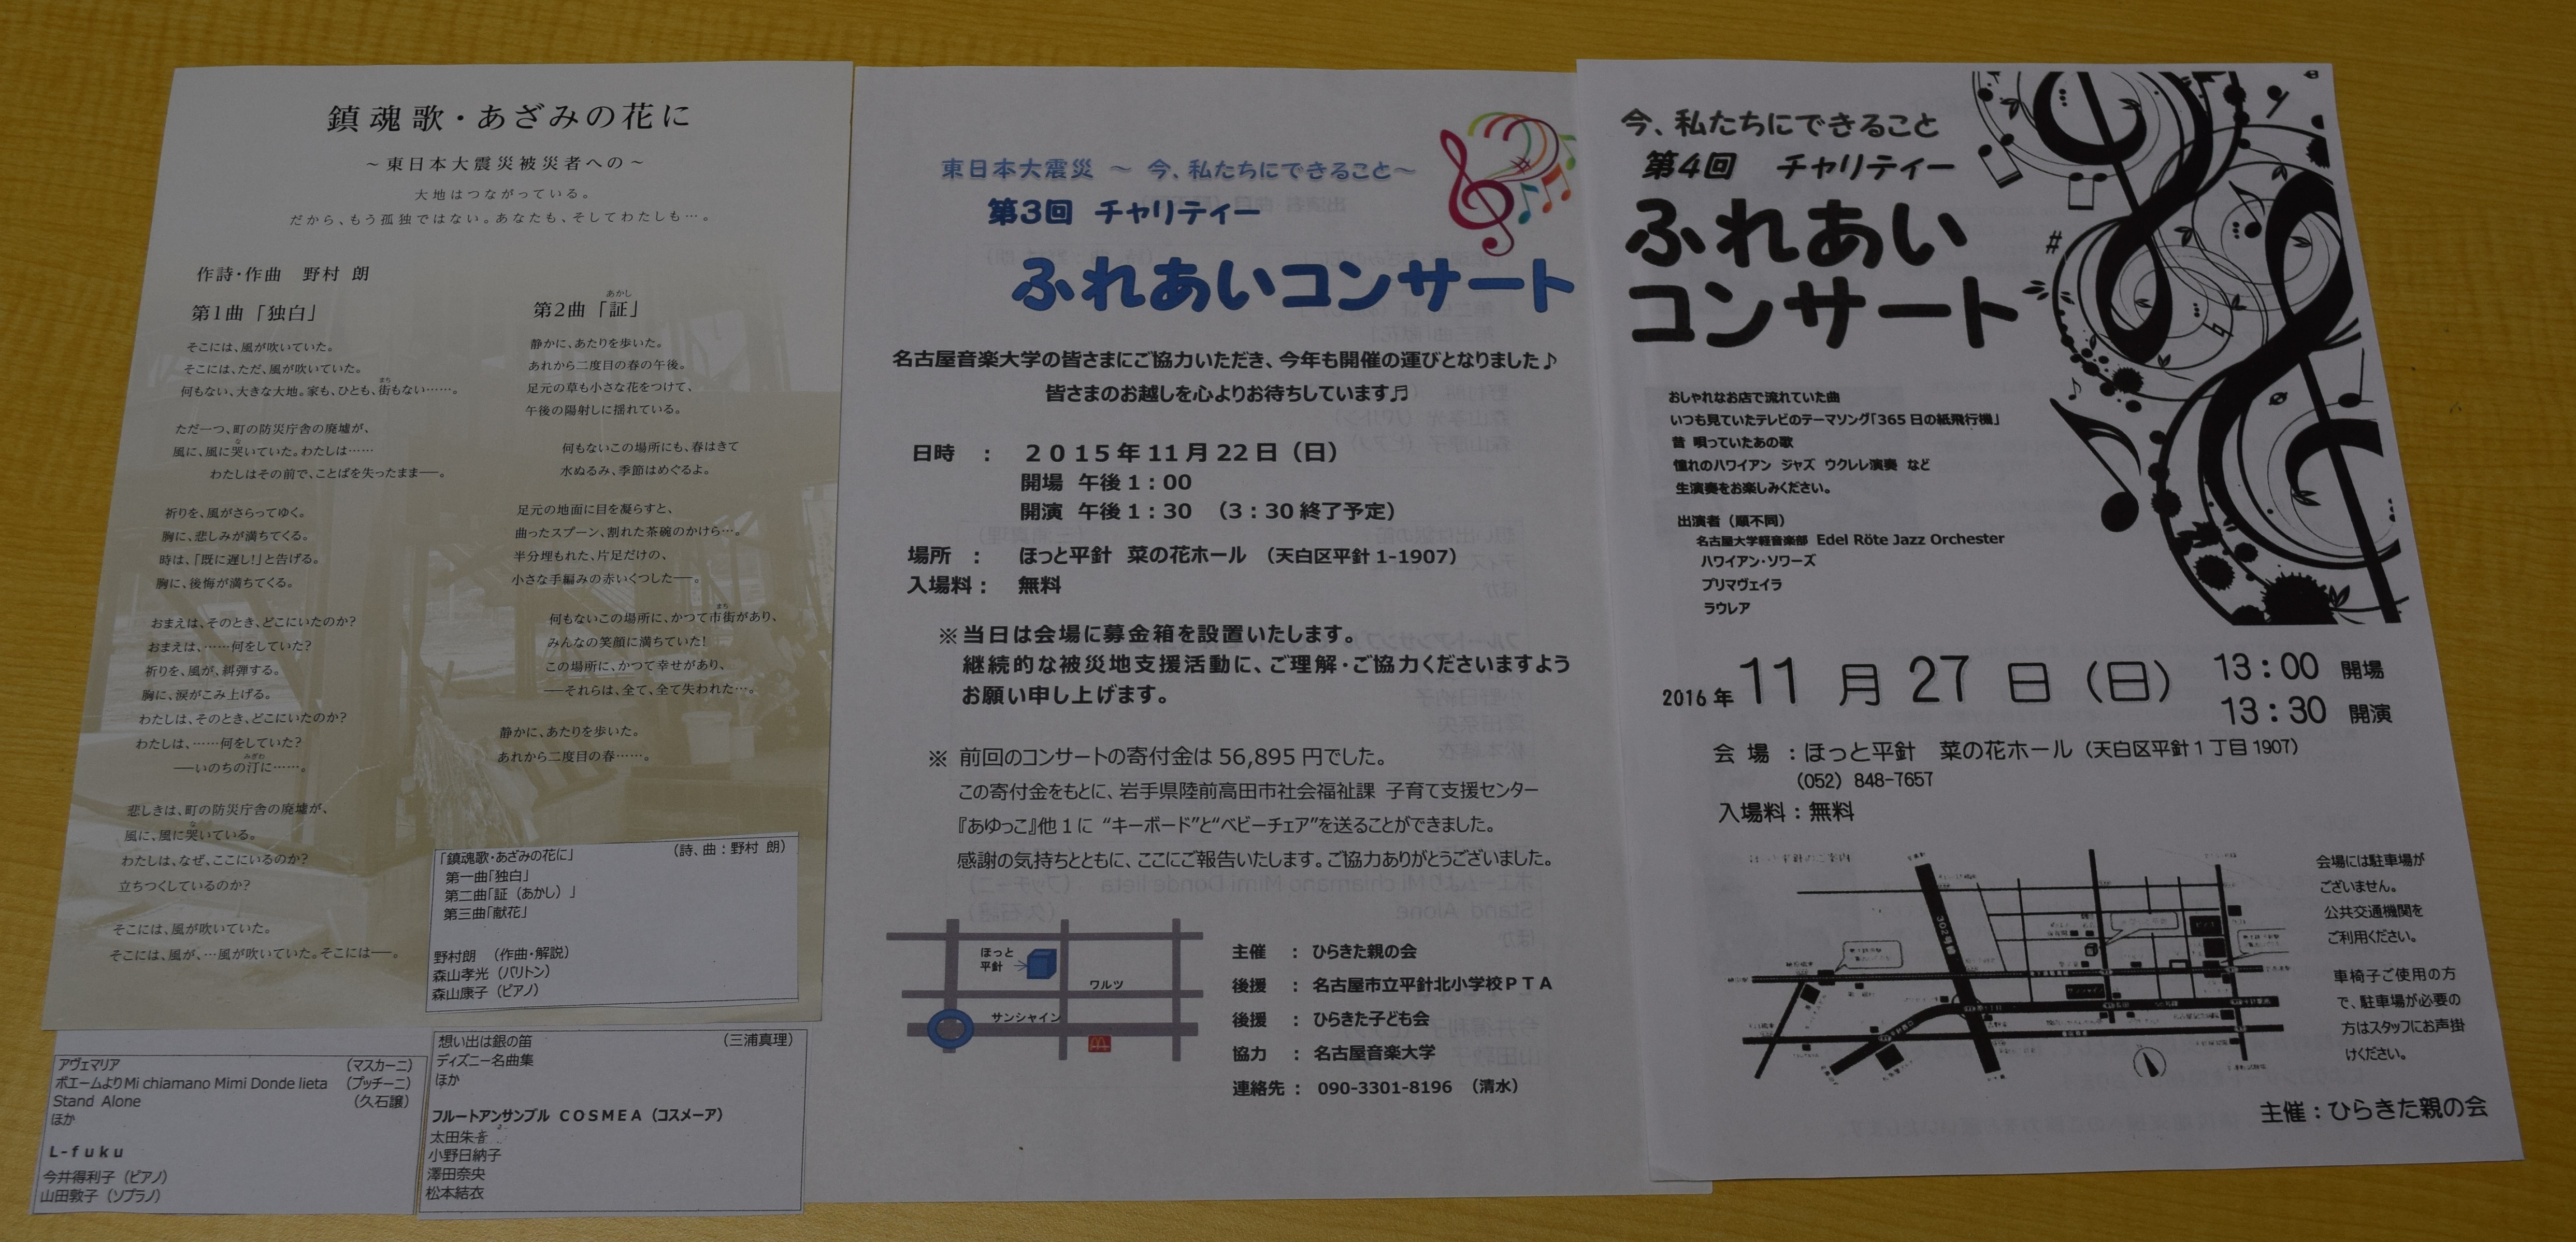 鎮魂歌・あざみの花に
～東日本大震災被災者への～
大地はつながっている。
だから、もう孤独ではない。あなたも、そしてわたしも…。
作詩・作曲　野村 朗
第1曲「独白」
そこには、風が吹いていた。
そこには、ただ、風が吹いていた。
何もない、大きな大地。家も、ひとも、街もない……。
まち
ただ一つ、町の防災庁舎の廃墟が、
風に、風に哭いていた。わたしは……
な
わたしはその前で、ことばを失ったまま──。
祈りを、風がさらってゆく。
胸に、悲しみが満ちてくる。
時は、「既に遅し!」と告げる。
胸に、後悔が満ちてくる。
おまえは、そのとき、どこにいたのか?
おまえは、……何をしていた?
祈りを、風が、糾弾する。
胸に、涙がこみ上げる。
わたしは、そのとき、どこにいたのか?
わたしは、……何をしていた?
──いのちの汀に……。
みぎわ
悲しきは、町の防災庁舎の廃墟が、
風に、風に哭いている。
な
わたしは、なぜ、ここにいるのか?
立ちつくしているのか?
そこには、風が吹いていた。
そこには、風が、…風が吹いていた。そこには──。
第2曲「証」
あかし
静かに、あたりを歩いた。
あれから二度目の春の午後。
足元の草も小さな花をつけて、
午後の陽射しに揺れている。
何もないこの場所にも、春はきて
水ぬるみ、季節はめぐるよ。
足元の地面に目を凝らすと、
曲ったスプーン、割れた茶碗のかけら…。
半分埋もれた、片足だけの、
小さな手編みの赤いくつした──。
何もないこの場所に、かつて市街があり、
まち
みんなの笑顔に満ちていた!
この場所に、かつて幸せがあり、
──それらは、全て、全て失われた…。
静かに、あたりを歩いた。
あれから二度目の春……。
「鎮魂歌・あざみの花に」　（詩、曲：野村 朗）
第一曲「独白」
第二曲「証（あかし）」
第三曲「献花」
野村朗　（作曲・解説）
森山孝光（バリトン）
森山康子（ピアノ）
アヴェマリア　（マスカーニ）
ボエームよりMi chiamano Mimi Donde lieta　（プッチーニ）
Stand Alone　（久石譲）
ほか
L-fuku
今井得利子（ピアノ）
山田敦子（ソプラノ）
想い出は銀の笛　（三浦真理）
ディズニー名曲集
ほか
フルートアンサンブル ＣＯＳＭＥＡ（コスメーア）
太田朱音
小野日納子
澤田奈央
松本結衣
東日本大震災 ～ 今、私たちにできること～
第3回 チャリティー
ふれあいコンサート
名古屋音楽大学の皆さまにご協力いただき、今年も開催の運びとなりました♪
皆さまのお越しを心よりお待ちしています♬
日時　：　２０１５年 11 月 22 日（日）
開場 午後 1：00
開演 午後 1：30　（3：30 終了予定）
場所　：　ほっと平針　菜の花ホール　（天白区平針 1-1907）
入場料：　無料
※ 当日は会場に募金箱を設置いたします。
継続的な被災地支援活動に、ご理解・ご協力くださいますよう
お願い申し上げます。
※ 前回のコンサートの寄付金は 56,895 円でした。
この寄付金をもとに、岩手県陸前高田市社会福祉課 子育て支援センター
『あゆっこ』他 1 に “キーボード”と“ベビーチェア”を送ることができました。
感謝の気持ちとともに、ここにご報告いたします。ご協力ありがとうございました。
ほっと
平針
ワルツ
サンシャイン
主催　：　ひらきた親の会
後援　：　名古屋市立平針北小学校ＰＴＡ
後援　：　ひらきた子ども会
協力　：　名古屋音楽大学
連絡先：　090-3301-8196　（清水）
今、私たちにできること
第4回　チャリティー
ふれあい
コンサート
おしゃれなお店で流れていた曲
いつも見ていたテレビのテーマソング「365 日の紙飛行機」
昔 唄っていたあの歌
憧れのハワイアン ジャズ ウクレレ演奏 など
生演奏をお楽しみください。
出演者（順不同）
名古屋大学軽音楽部 Edel Röte Jazz Orchester
ハワイアン・ソワーズ
プリマヴェイラ
ラウレア
2016 年 11 月 27 日（日）　13：00 開場
13：30 開演
会 場 ：ほっと平針　菜の花ホール（天白区平針 1 丁目 1907）
（052）848-7657
入場料：無料
302号線
会場には駐車場が
ございません。
公共交通機関を
ご利用ください。
車椅子ご使用の方
で、駐車場が必要の
方はスタッフにお声掛
けください。
主催：ひらきた親の会